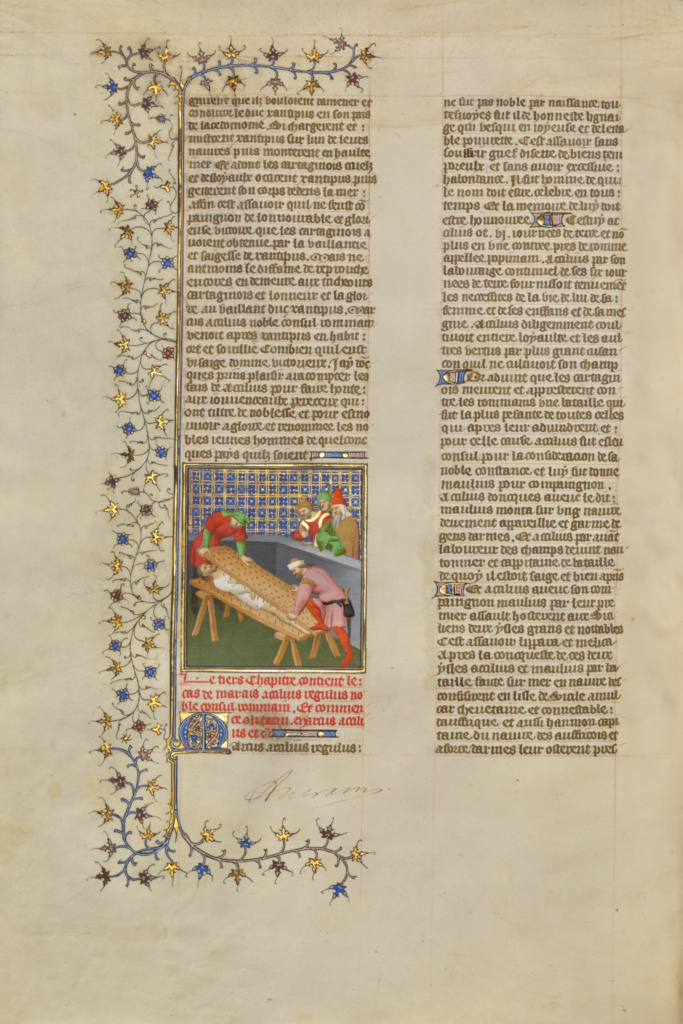 gnirent que ilz vouloient ramener et
conduire le duc xantipus en son pais
de lacedomone. Si chargerent et :
misdrent xantipus sur lun de leurs
navires puis monterent en haulte
mer Et adont les cartaginois cruelz
et desloyaulx occirent xantipus puis
getterent son corps dedens la mer :
affin cest assavoir quil ne feust co
paignon de lonnourable et glori
euse victoire que les cartaginois a
voient obtenue par la vaillance
et saigesse de xantipus. Mais ne
antmoins le diffame de reprouche
encores en demeure aux tricheurs
cartaginois et lonneur et la gloi
re au vaillant duc xantipus. Mar
cus acilius noble consul rommain
venoit apres xantipus en habit :
ort et soullie Combien quil eust
visaige domme victorieux. Jay
prins plaisir a racompter les
fais de acilius pour faire honte :
aux jouvenceaulx pereceux qui :
ont tiltre de noblesse et pour esmo
uvoir a gloire et renommee les no
bles jeunes hommes de quelconc
ques pays quilz soient
Le tiers Chapitre contient le :
cas de marcus acilius regulus no
ble consul rommain. Et commen
ce ou latin. Marcus acili
us et c
Marcus acilius regulus :
ne fut pas noble par naissance tou
tesvoyes fut il de honneste lignai
ge qui vesqui en joyeuse et delita
ble pouvrete. Cest assavoir sans
souffrir grief disette de biens tem
poreulx et sans avoir excessive :
habondance. Il fut homme de qui :
le nom doit estre celebre en tous :
temps Et la memoire de luy doit
estre honnouree. Cestuy ac
cilius ot .vj. journees de terre et no
plus en une contree pres de romme
appellee popinam. Acilius par son
labouraige continuel de ses six jour
nees de terre fournissoit tenuement
les necessites de la vie de lui de sa :
femme et de ses enffans et de sa mes
gnie. Acilius diligemment coul
tivoit entiere loyaulte et les aul
tres vertus par plus grant cusan
con quil ne cultivoit son champ
Or advint que les cartagin
ois meurent et appresterent con
tre les rommains une bataille qui
fut la plus pesante de toutes celles
qui apres leur advindrent et :
pour celle cause acilius fut esleu
consul pour la consideration de sa
noble constance et luy fut donne
maulius pour compaignon.
Acilius doncques avecc le dit :
maulius monta sur ung navire
deuement appareillie et garni de
gens darmes. Et acilius par avant
laboureur des champs devint nau
tonnier et cappitaine de bataille
de quoy il estoit saige et bien apris
Et acilius avecc son com
paingnon maulius par leur pre
mier assault hosterent aux Sici
liens deux ysles grans et nottables
Cest assavoir lippara et melica
Apres la concqueste de ces deux
ysles acilius et maulius par ba
taille faitte sur mer en navire des
confirent en lisle de Sicile amil
car chevetaine et connestable :
daffrique et aussi hannon capi
taine du navire des auffricois et
a force darmes leur osterent pres